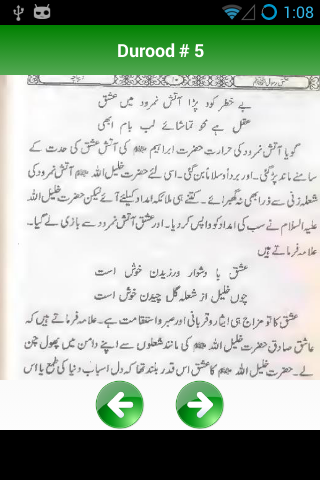 1:08
Durood # 5
عشق رسول ﷺ
بے خطر کود پڑا آتش نمرود میں عشق
عقل ہے محو تماشائے لب بام ابھی
گویا آتش نمرود کی حرارت حضرت ابراہیم کی آتش عشق کی حدت کے
سامنے ماند پڑ گئی۔ اور برداً وسلاماً بن گئی۔ اسی لئے حضرت خلیل اللہ آتش نمرود کی
شعلہ زنی سے ذرا بھی نہ گھبرائے۔ کتنے ہی ملائکہ امداد کیلئے آئے لیکن حضرت خلیل اللہ
علیہ السلام نے سب کی امداد کو واپس کر دیا۔ اور عشق آتش نمرود سے بازی لے گیا۔
علامہ فرماتے ہیں
عشق با دشوار ورزیدن خوش است
چوں خلیل از شعلہ گل چیدن خوش است
عشق کا تو مزاج ہی ایثار و قربانی اور صبر و استقامت ہے۔ علامہ فرماتے ہیں کہ
عاشق صادق حضرت خلیل اللہ کی مانند شعلوں سے اپنے دامن میں پھول چن
لے۔ حضرت خلیل اللہ کا عشق اس قدر بلند تھا کہ دل اسباب دنیا کی طمع یا اس